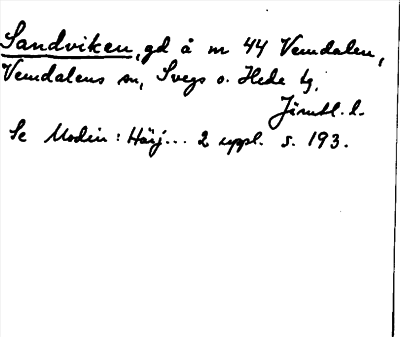 Sandviken, gd å m 44 Vemdalen,
Vemdalens sn, Svegs o. Hede tg,
Jämtl. l.
Se Modin: Härj... 2 uppl. s. 193.